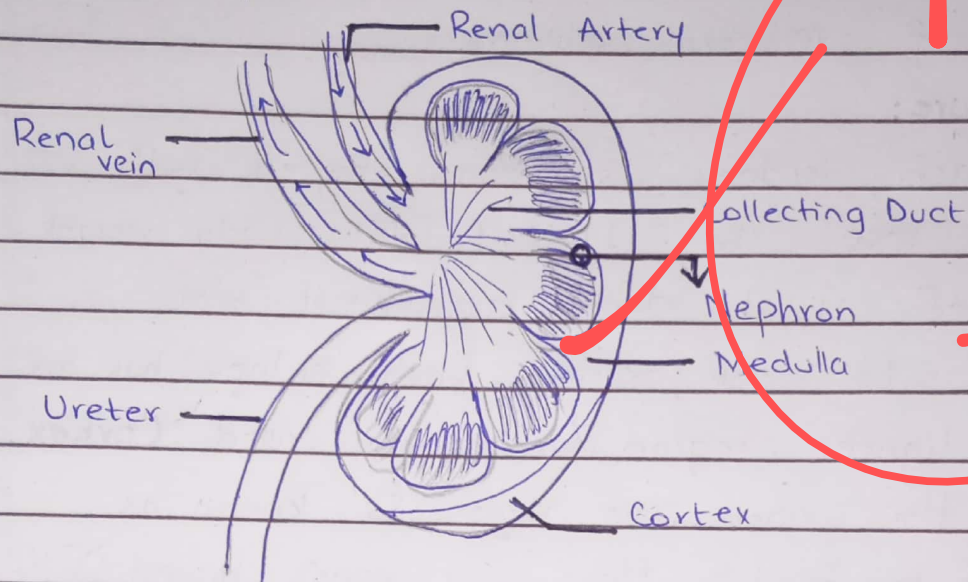 Renal Artery
Renal
vein
Collecting Duct
Nephron
Medulla
Ureter
Cortex